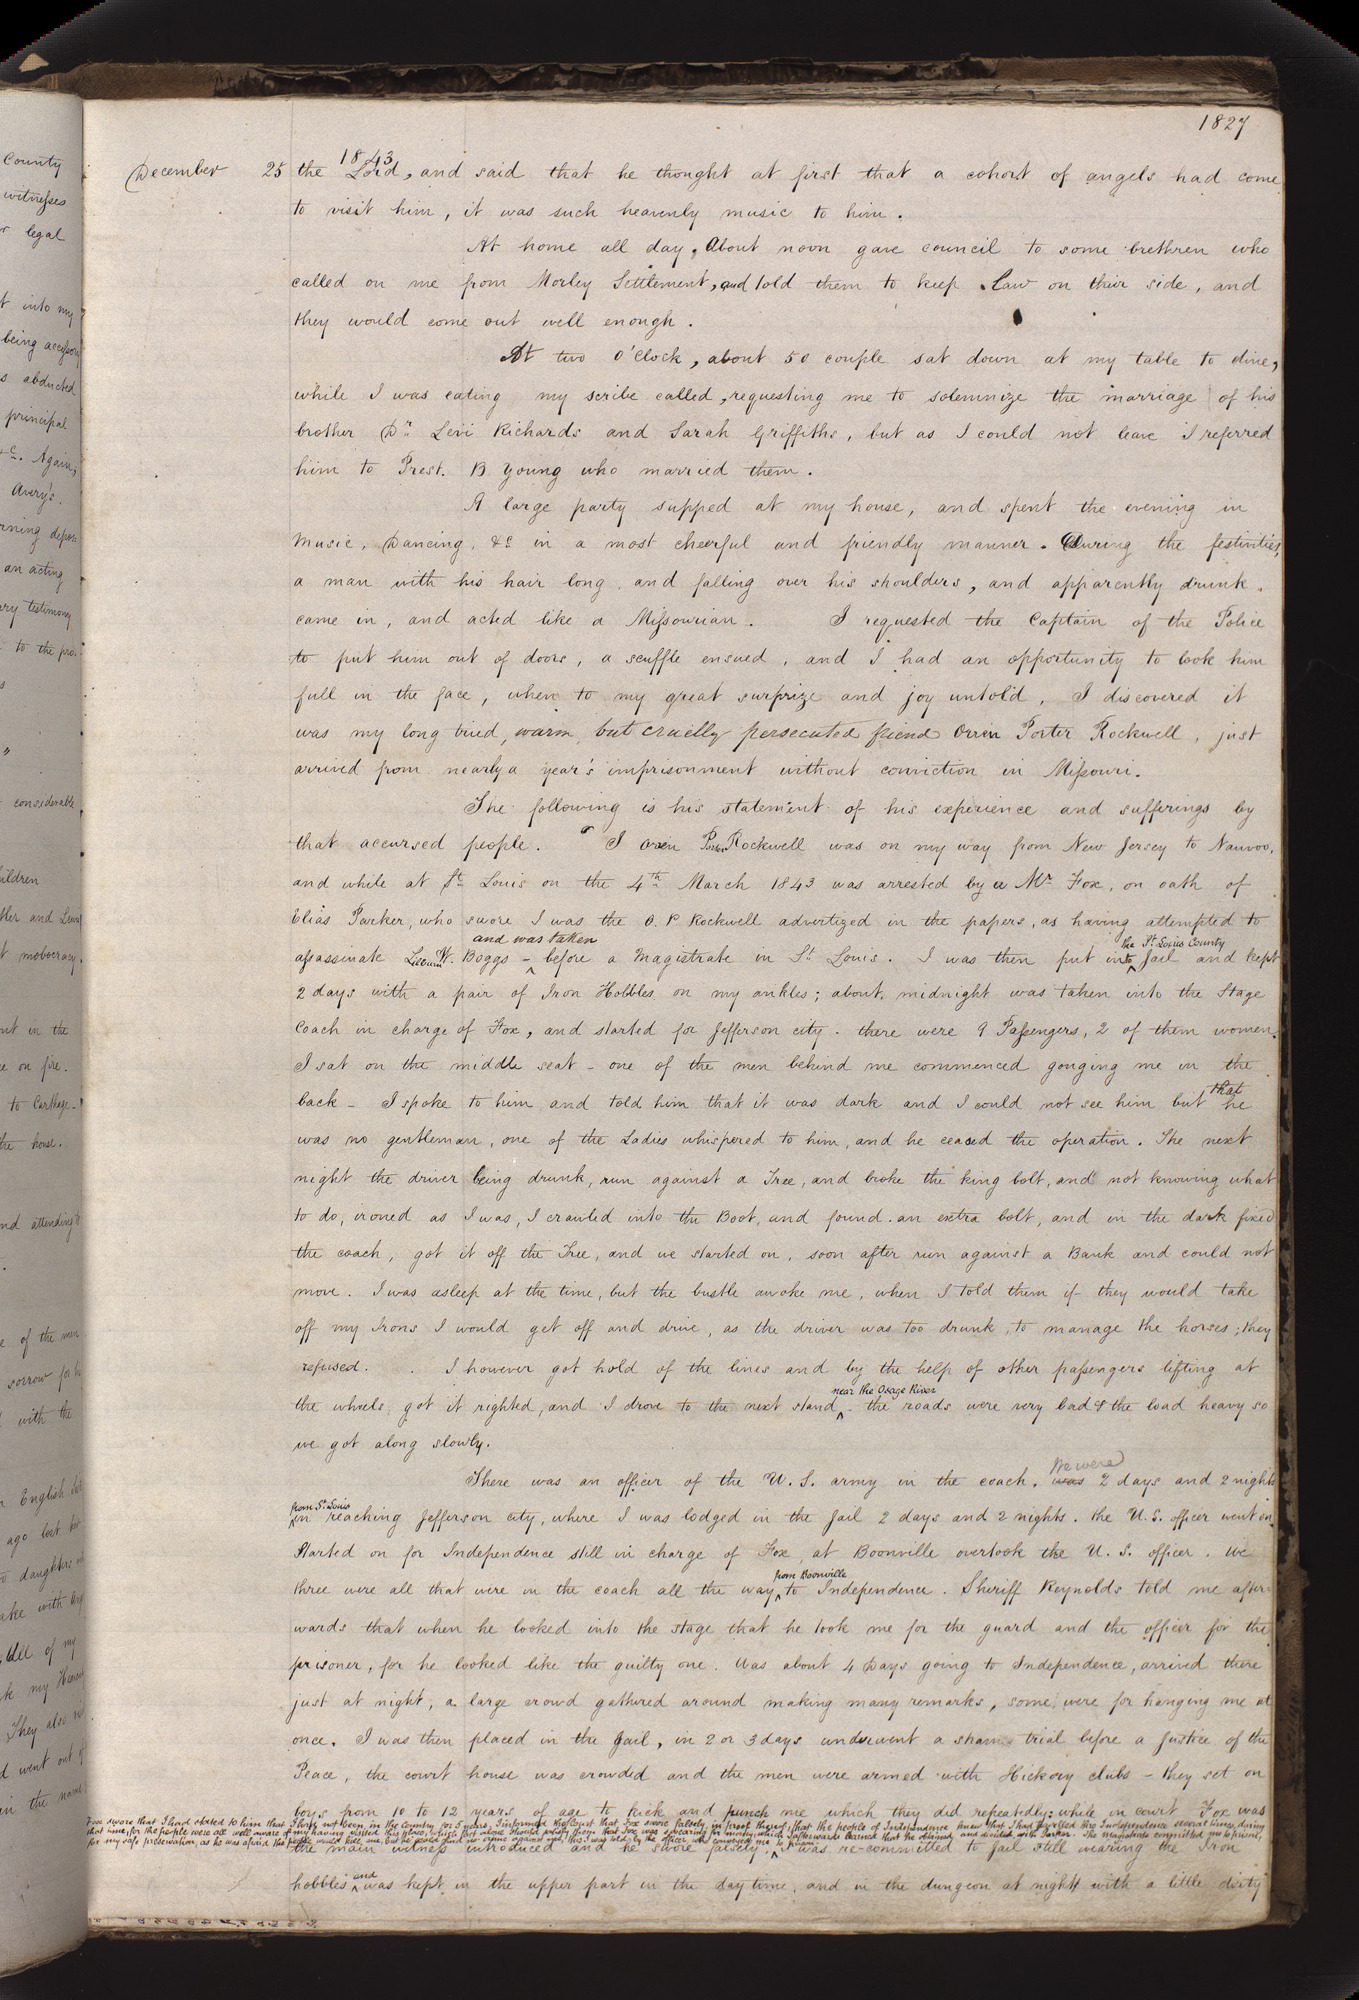 1827
1843
December 25 the Lord, and said that he thought at first that a cohort of angels had come
to visit him, it was such heavenly music to him.
At home all day, About noon gave council to some brethren who
called on me from Morley Settlement, and told them to keep Law on their side, and
they would come out well enough.
At two O'Clock, about 50 couple sat down at my table to dine,
while I was eating my scribe called, requesting me to solemnize the marriage of his
brother Dr. Levi Richards and Sarah Griffiths, but as I could not leave I referred
him to Prest. B Young who married them.
A large party supped at my house, and spent the evening in
Music, Dancing, &c in a most cheerful and friendly manner. During the festivities
a man with his hair long and falling over his shoulders, and apparently drunk.
came in, and acted like a Missourian. I requested the Captain of the Police
to put him out of doors, a scuffle ensued, and I had an opportunity to look him
full in the face, when to my great surprize and joy untold, I discovered it
was my long tried, warm, but cruelly persecuted friend Orrin Porter Rockwell, just
arrived from nearly a year's imprisonment without conviction in Missouri.
The following is his statement of his experience and sufferings by
that accursed people. "I Orrin Porter Rockwell was on my way from New Jersey to Nauvoo,
and while at St. Louis on the 4th March 1843 was arrested by a Mr Fox, on oath of
Elias Parker, who swore I was the O. P Rockwell advertized in the papers, as having attempted to
and was taken the St. Louis County
assassinate Lilburn W. Boggs - ^ before a Magistrate in St. Louis. I was then put into ^ Jail and kept
2 days with a pair of Iron Hobbles on my ankles; about midnight was taken into the Stage
Coach in charge of Fox, and started for Jefferson city. there were 9 Passengers, 2 of them women.
I sat on the middle seat - one of the men behind me commenced gouging me in the
that
back - I spoke to him and told him that it was dark and I could not see him but he
was no gentleman, one of the Ladies whispered to him, and he ceased the operation. The next
night the driver being drunk, run against a Tree, and broke the king bolt, and not knowing what
to do, ironed as I was, I crawled into the Boot, and found an extra bolt, and in the dark fixed
the coach, got it off the Tree, and we started on, soon after run against a Bank and could not
move. I was asleep at the time, but the bustle awoke me, when I told them if they would take
off my Irons I would get off and drive, as the driver was too drunk, to manage the horses; they
refused. I however got hold of the lines and by the help of other passengers lifting at
near the Osage River
the wheels got it righted, and I drove to the next stand ^ - the roads were very bad & the load heavy so
we got along slowly.
We were
There was an officer of the U. S. army in the coach. was 2 days and 2 nights
from St. Louis
^ in reaching Jefferson city, where I was lodged in the Jail 2 days and 2 nights. the U. S. officer went on.
Started on for Independence still in charge of Fox, at Boonville overtook the U. S. officer. we
from Boonville
three were all that were in the coach all the way ^ to Independence. Sheriff Reynolds told me after-
wards that when he looked into the stage that he took me for the guard and the officer for the
prisoner, for he looked like the guilty one. Was about 4 Days going to Independence, arrived there
just at night, a large crowd gathered around making many remarks, some were for hanging me at
once. I was then placed in the Jail, in 2 or 3 days underwent a sham trial before a Justice of the
Peace, the court house was crowded and the men were armed with Hickory clubs - they set on
boys from 10 to 12 years of age to kick and punch me which they did repeatedly: while in court Fox was
Fox swore that I had stated to him that I had not been in the country for 5 years. Informed the Court that Fox swore falsely, in proof thereof, that the people of Independence knew that I had travelled thro Independence several times during
that time, for the people were all well aware of my having visited this place, which fact alone should satisfy them that Fox was swearing for money; which I afterwards learned that he obtained and divided with Parker. The magistrate committed me to prison,
for my safe preservation, as he was afraid the people would kill me, but he could find no crime against me, this I was told by the officer who conveyed me to prison.
the main witness introduced and he swore falsely, ^ I was re-committed to Jail still wearing the Iron
and
hobbles ^ was kept in the upper part in the day time, and in the dungeon at night with a little dirty